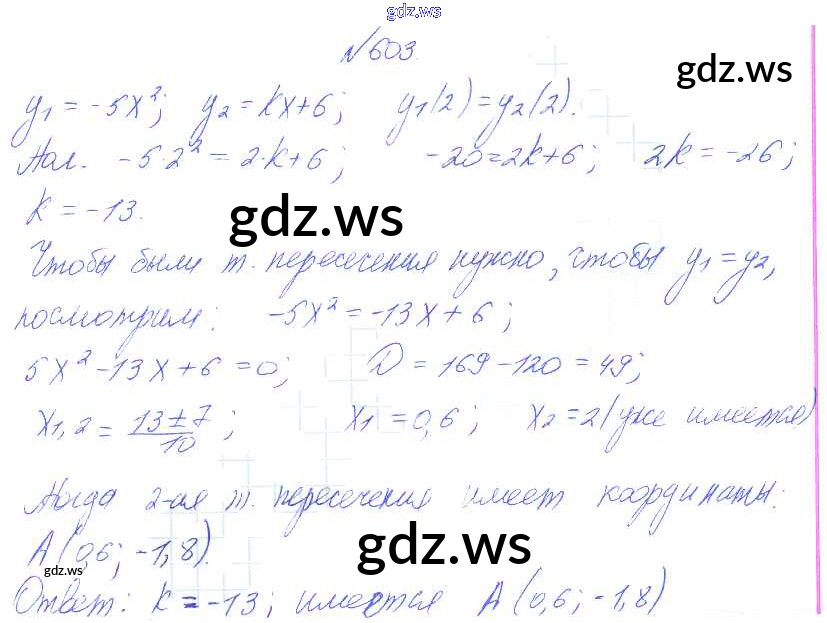 gdz.ws
№603.
gdz.ws
y₁ = -5x²; y₂ = kx+6; y₁(2) = y₂(2).
-5·2² = 2·k+6; -20=2k+6; 2k = -26;
k = -13.
gdz.ws
Чтобы были т. пересечения нужно, чтобы y₁ = y₂,
посмотрим: -5x² = -13x + 6;
5x² - 13x + 6 = 0; D = 169 - 120 = 49;
x₁,₂ = (13 ± 7)/10; x₁ = 0,6; x₂ = 2 (уже имеется)
Тогда 2-ая т. пересечения имеет координаты:
A (0,6; -1,8).
gdz.ws
gdz.ws
Ответ: k = -13; имеется A (0,6; -1,8)